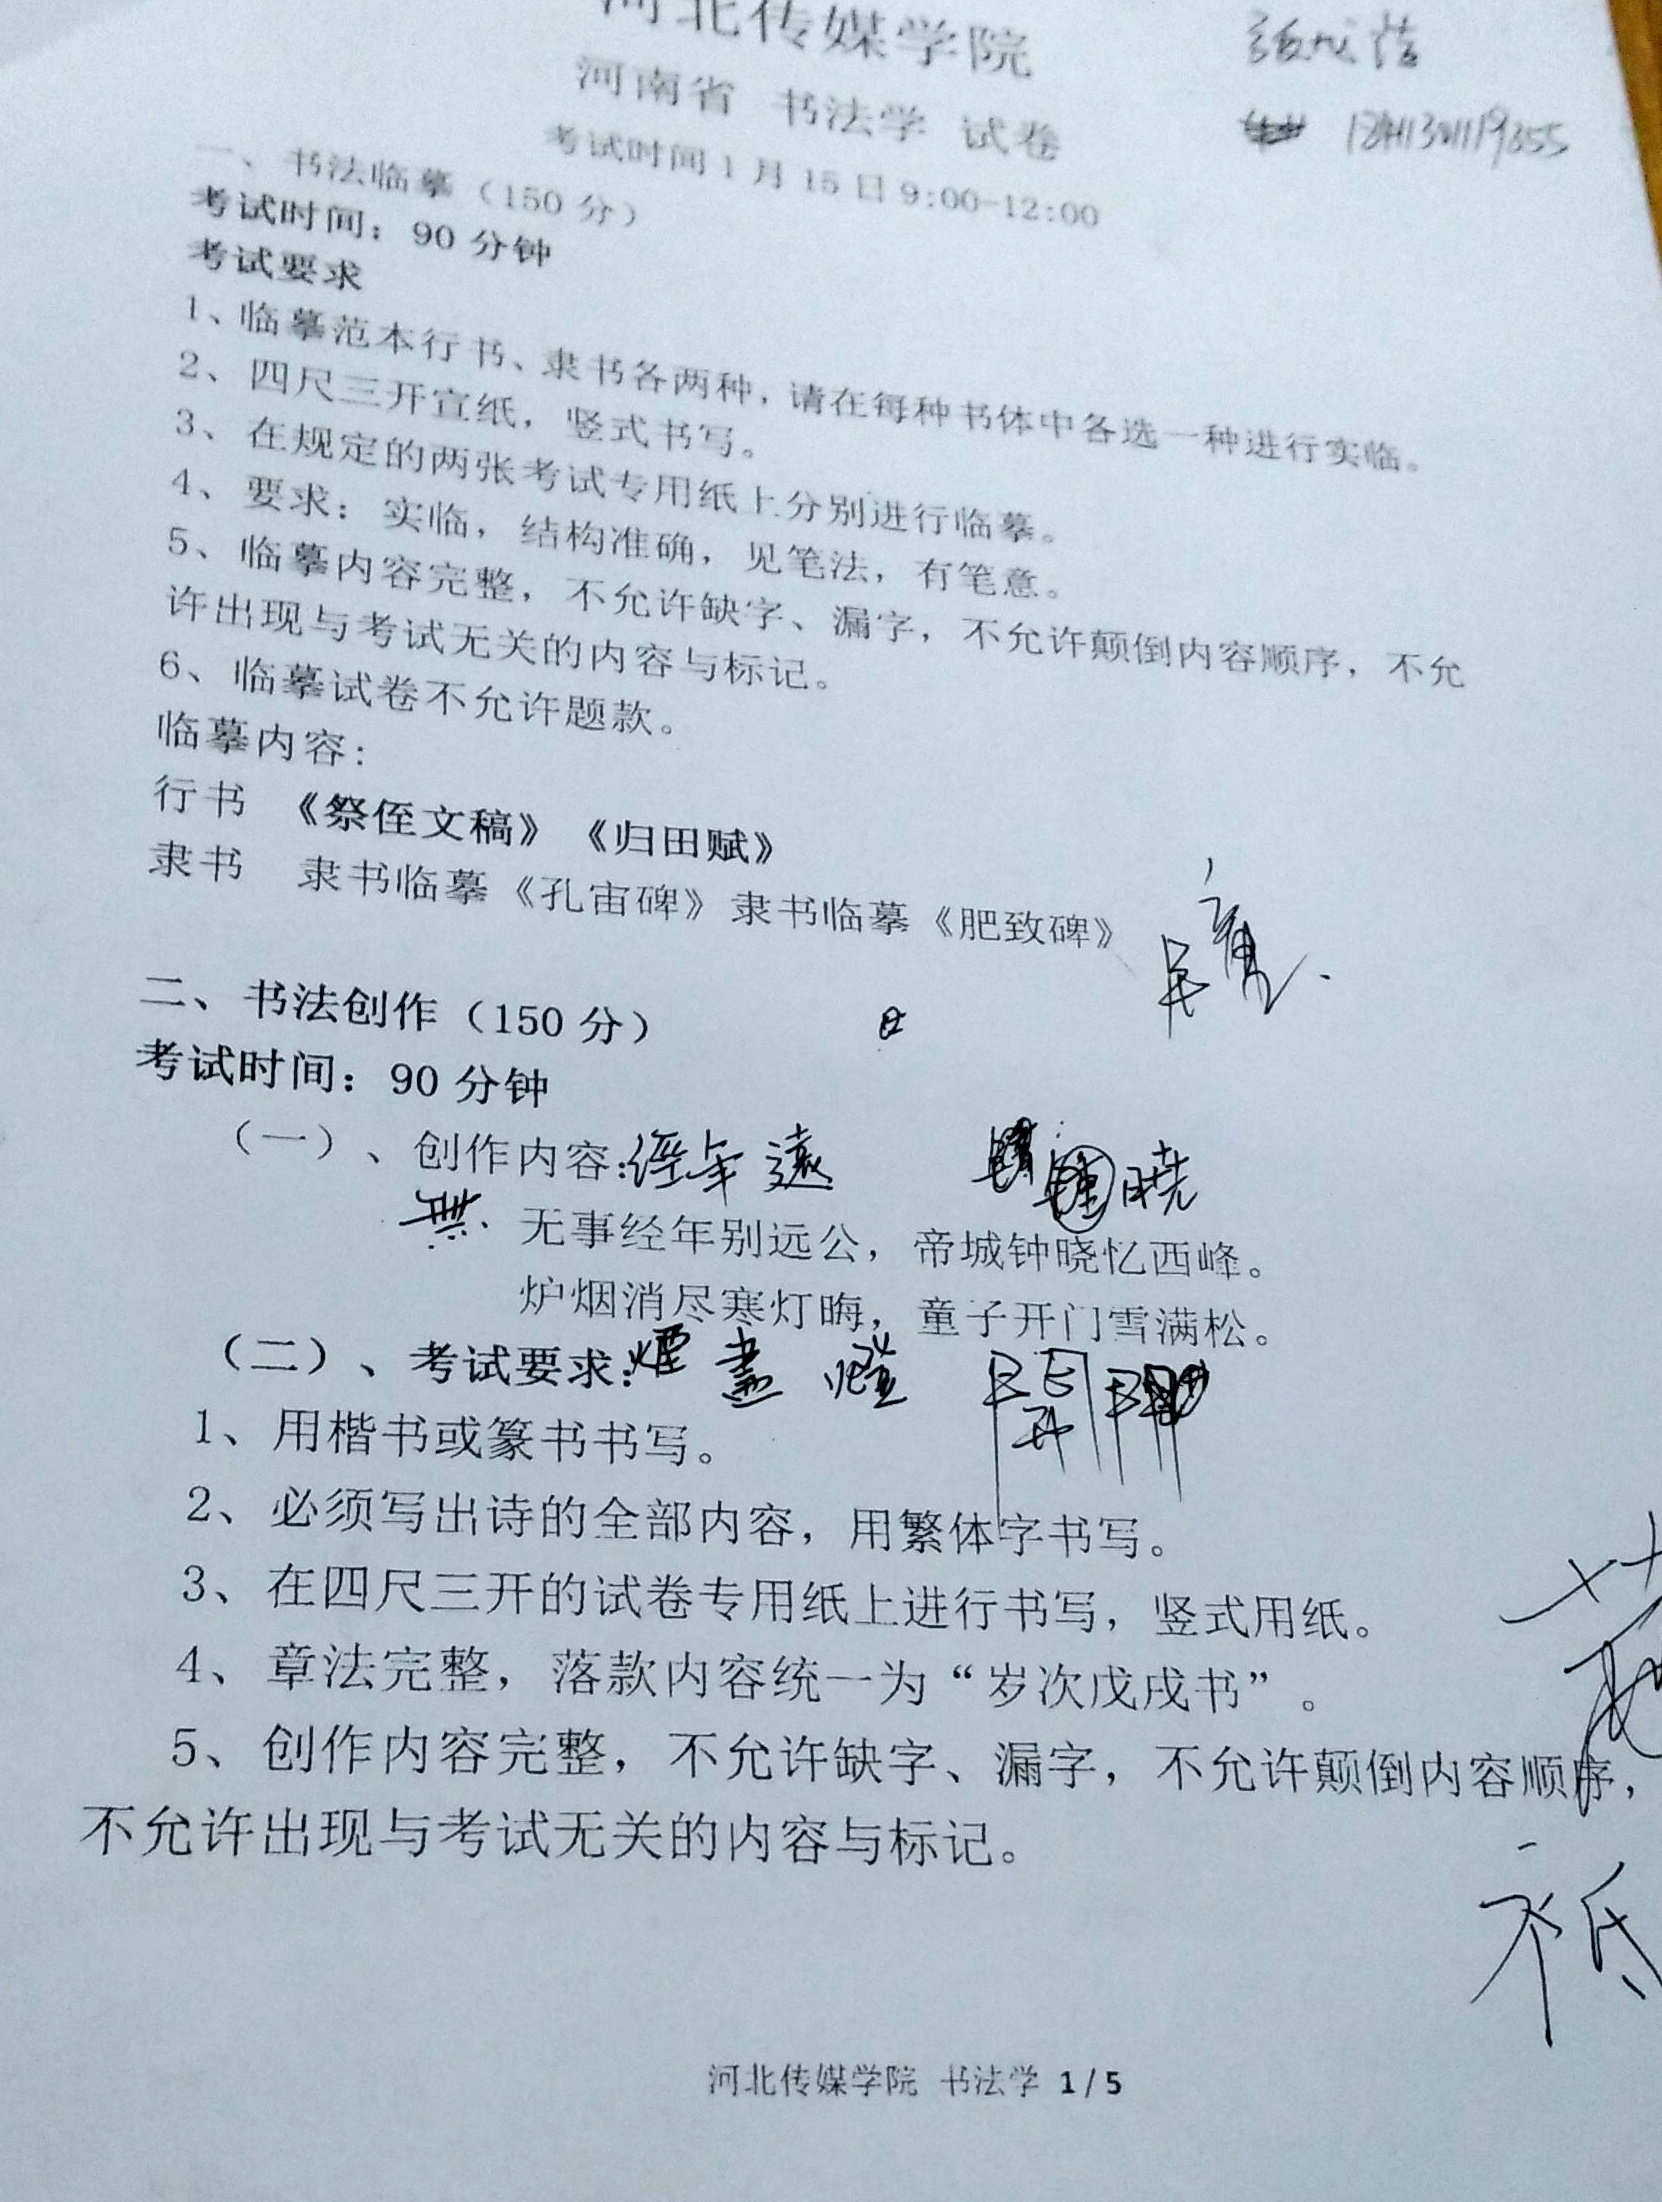 河北传媒学院
河南省 书法学 试卷
考试时间1月15日9:00-12:00
一、书法临摹（150分）
考试时间：90分钟
考试要求
1、临摹范本行书、隶书各两种，请在每种书体中各选一种进行实临。
2、四尺三开宣纸，竖式书写。
3、在规定的两张考试专用纸上分别进行临摹。
4、要求：实临，结构准确，见笔法，有笔意。
5、临摹内容完整，不允许缺字、漏字，不允许颠倒内容顺序，不允
许出现与考试无关的内容与标记。
6、临摹试卷不允许题款。
临摹内容：
行书 《祭侄文稿》《归田赋》
隶书 隶书临摹《孔宙碑》隶书临摹《肥致碑》
二、书法创作（150分）
考试时间：90分钟
（一）、创作内容：經年遠 曉
無
无事经年别远公，帝城钟晓忆西峰。
炉烟消尽寒灯晦，童子开门雪满松。
（二）、考试要求：煙盡燈開
1、用楷书或篆书书写。
2、必须写出诗的全部内容，用繁体字书写。
3、在四尺三开的试卷专用纸上进行书写，竖式用纸。
4、章法完整，落款内容统一为“岁次戊戌书”。
5、创作内容完整，不允许缺字、漏字，不允许颠倒内容顺序，
不允许出现与考试无关的内容与标记。
河北传媒学院 书法学 1/5